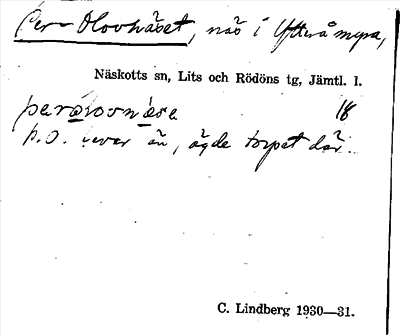 Per-Olovnäset, näs i Ytteråmyra,
Näskotts sn, Lits och Rödöns tg, Jämtl. l.
18
P.O. levar än, ägde torpet där.
C. Lindberg 1930—31.